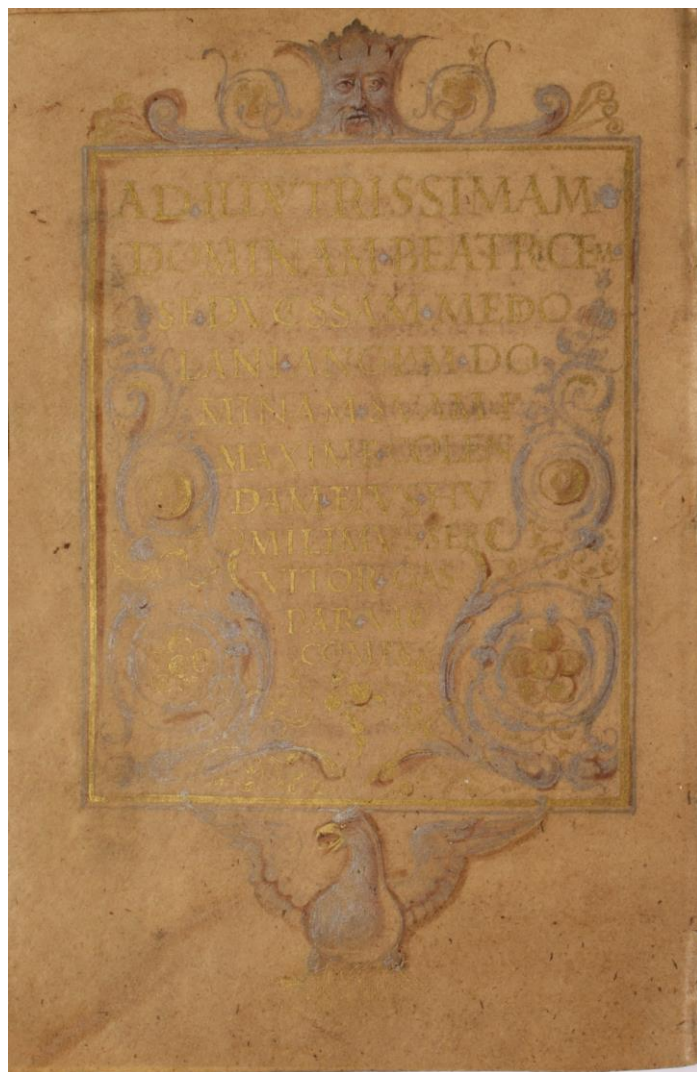 AD·ILLVTRISSIMAM·
DOMINAM·BEATRICEM·
SF·DVCSSAM·MEDIO
LANI·ANGEM·DO
MINAM
MAXIME COLEN
DAM·EIVS·HV
MILIMVS·SER
VITOR·GAS
PAR·VIC
COMES